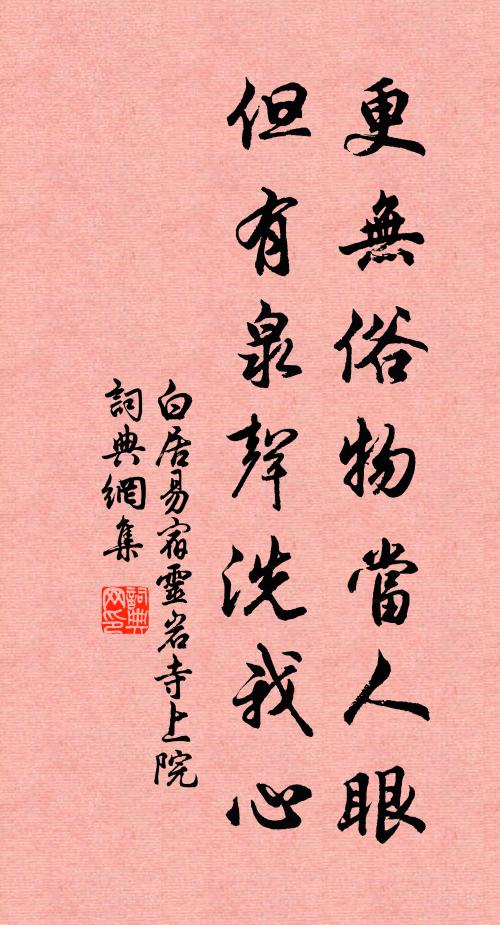 更無俗物當人眼
但有泉聲洗我心
白居易宿靈岩寺上院
詞典網集
詞典
网印